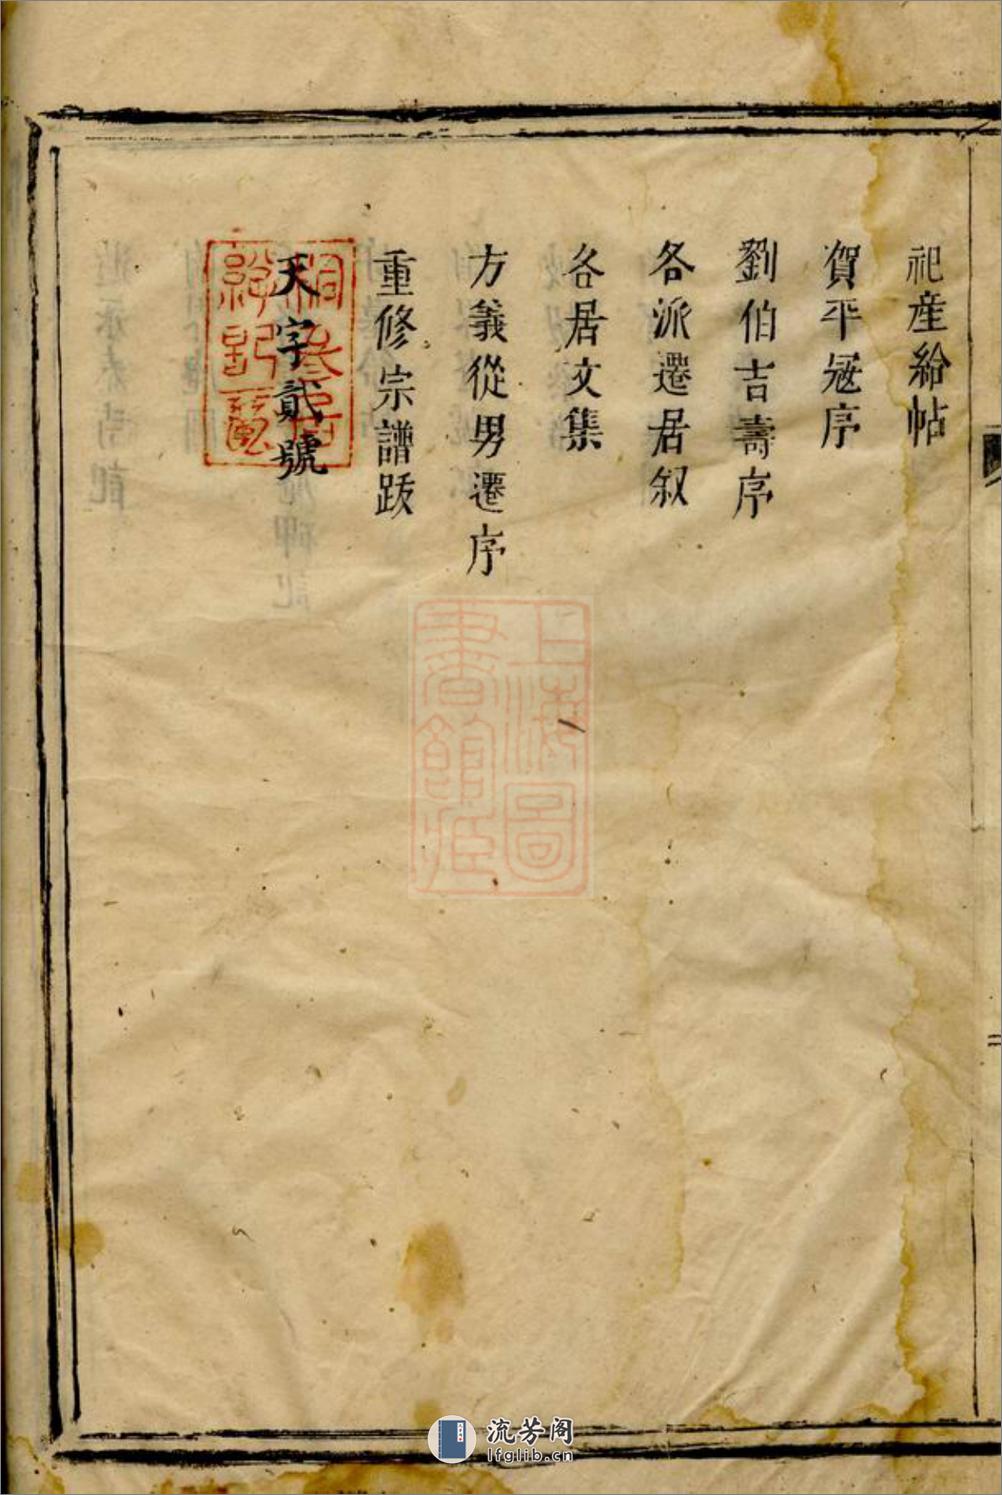 祀產給帖
賀平冦序
劉伯吉壽序
各派遷居叙
各居文集
方義從男遷序
重修宗譜跋
天字貳號
上海圖
書館藏
流芳阁
lfglib.cn